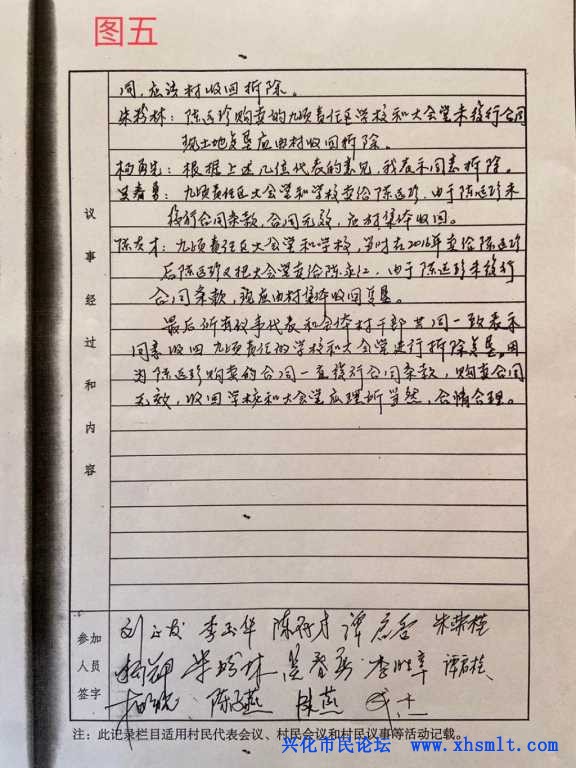 图五
议事经过和内容
同,应该村收回拆除。
朱粉林:陈远珍购卖的九顷责任区学校和大会堂未履行合同
现土地复垦应由村收回拆除。
杨勇先:根据上述几位代表的意见,我表示同意拆除。
吴春勇:九顷责任区大会堂和学校卖给陈远珍,由于陈远珍未
履行合同条款,合同无效,应村集体收回。
陈友才:九顷责任区大会堂和学校,当时在2016年卖给陈远珍
后陈远珍又把大会堂卖给陈永江,由于陈远珍未履行
合同条款,现应由村集体收回复垦。
最后所有议事代表和全体村干部共同一致表示
同意收回九顷责任的学校和大会堂进行拆除复垦。因
为陈远珍购卖的合同一直履行合同条款,购卖合同
无效,收回学校和大会堂应理所当然,合情合理。
参加人员签字
李玉华 陈 才 谭 朱荣桂
朱粉林 吴春勇 李 谭 桂
陈 燕 燕
注:此记录栏目适用村民代表会议、村民会议和村民议事等活动记载。
兴化市民论坛 www.xhsmlt.com